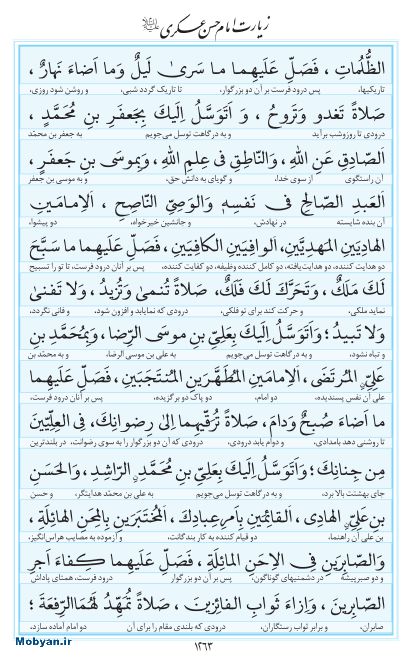 زیارت امام حسن عسکری علیه‌السلام
الظُّلُماتِ ، فَصَلِّ عَلَیهِما ما سَریٰ لَیلٌ وَما اَضاءَ نَهارٌ ،
تاریکیها، پس درود فرست بر آن دو بزرگوار، تا تاریک گردد شبی، و روشن شود روزی،
صَلاةً تَغدو وَتَروحُ ، وَ اَتَوَسَّلُ اِلَیكَ بِجَعفَرِ بنِ مُحَمَّدٍ ،
درودی تا روزوشب برآید و به درگاهت توسل می‌جویم به جعفر بن محمّد
الصّادِقِ عَنِ اللهِ ، وَالنّاطِقِ فی عِلمِ اللهِ ، وَبِموسَی بنِ جَعفَرٍ ،
آن راستگوی از سوی خدا، و گویای به دانش حق، و به موسی بن جعفر
العَبدِ الصّالِحِ فی نَفسِهِ وَالوَصِیِّ النّاصِحِ ، اَلاِمامَینِ
آن بنده شایسته در نهادش، و جانشین خیرخواه، دو پیشوا،
الهادِیَینِ المَهدِیَّینِ، اَلوافِیَینِ الکافِیَینِ ، فَصَلِّ عَلَیهِما ما سَبَّحَ
دو هدایت کننده، دو هدایت‌یافته، دو کامل کننده وظیفه، دو کفایت کننده، پس بر آنان درود فرست، تا تو را تسبیح
لَكَ مَلَكٌ ، وَتَحَرَّكَ لَكَ فَلَكٌ، صَلاةً تُنمیٰ وَتَزیدُ ، وَلا تَفنیٰ
نماید ملکی، و حرکت کند برای تو فلکی، درودی که نمایاند و افزون شود، و فانی نگردد،
وَلا تَبیدُ ؛ وَاَتَوَسَّلُ اِلَیكَ بِعَلِیِّ بنِ موسَی الرِّضا، وَبِمُحَمَّدِ بنِ
و تباه نشود، و به درگاهت توسل می‌جویم به علی بن موسی الرضا، و به محمّد بن
عَلِیٍّ المُرتَضیٰ ، اَلاِمامَینِ المُطَهَّرَینِ المُنتَجَبَینِ ، فَصَلِّ عَلَیهِما
علی آن نفس پسندیده، دو امام، دو پاک دو برگزیده، پس بر آنان درود فرست،
ما اَضاءَ صُبحٌ وَدامَ، صَلاةً تُرَقّیهِما اِلیٰ رِضوانِكَ، فِی العِلِّیّینَ
تا روشنی دهد بامدادی، و دوام یابد درودی، درودی که آن دو بزرگوار را به سوی رضوانت، در بلندترین
مِن جِنانِكَ ؛ وَاَتَوَسَّلُ اِلَیكَ بِعَلِیِّ بنِ مُحَمَّدٍ الرّاشِدِ ، وَالحَسَنِ
جای بهشتت بالا برد، و به درگاهت توسل می‌جویم به علی بن محمّد هدایتگر، و حسن
بنِ عَلِیٍّ الهادی، اَلقائِمَینِ بِاَمرِ عِبادِكَ ، اَلمُختَبَرَینِ بِالمِحَنِ الهائِلَةِ ،
بن علی آن راهنما، دو قیام کننده به کار بندگانت، و آزموده به مصایب هراس‌انگیز،
وَالصّابِرَینِ فِی الاِحَنِ المائِلَةِ ، فَصَلِّ عَلَیهِما کِفاءَ اَجرِ
و دو صبرپیشه در دشمنیهای گوناگون، پس بر آن دو بزرگوار درود فرست، همتای پاداش
الصّابِرینَ ، وَاِزاءَ ثَوابِ الفائِزینَ ، صَلاةً تُمَهِّدُ لَهُمَا الرِّفعَةَ ؛
صابران، و برابر ثواب رستگاران، درودی که بلندی مقام را برای آن دو امام آماده سازد.
۱۲۶۳
Mobyan.ir